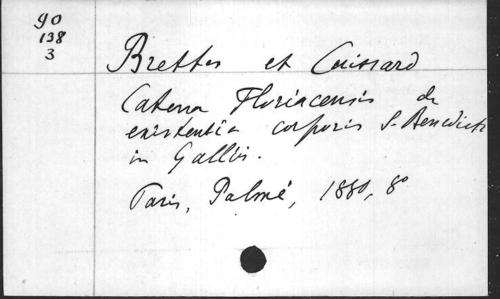 90
138
3
Brettes et Cuissard
Catena Floriacensis de
existentia corporis S. Benedicti
in Galliis.
Paris, Palmé, 1880, 8°